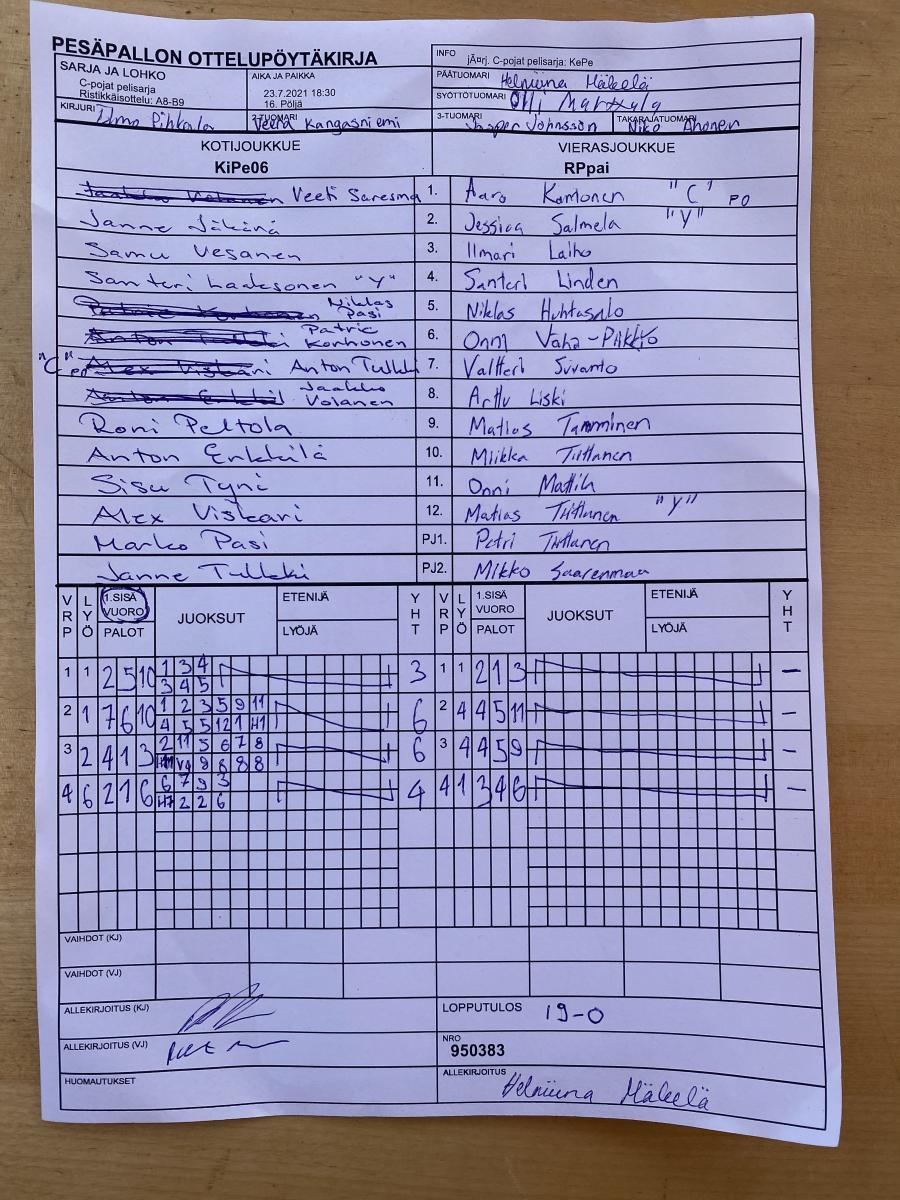 PESÄPALLON OTTELUPÖYTÄKIRJA
INFO jÄ¤rj. C-pojat pelisarja: KePe
SARJA JA LOHKO
C-pojat pelisarja
Ristikkäisottelu: A8-B9
AIKA JA PAIKKA
23.7.2021 18:30
16. Pöljä
PÄÄTUOMARI Helmiina Mäkelä
SYÖTTÖTUOMARI Olli Marttala
KIRJURI Ilmo Pihkala
2-TUOMARI Veera Kangasniemi
3-TUOMARI Jasper Johnsson
TAKARAJATUOMARI Niko Ahonen
KOTIJOUKKUE VIERASJOUKKUE
KiPe06 RPpai
Jaakko Volanen Veeti Saresma 1. Aaro Komonen "C" PO
Janne Jäkinä 2. Jessica Salmela "Y"
Samu Vesanen 3. Ilmari Laiho
Santeri Laaksonen "Y" 4. Santeri Linden
Patric Korhonen Niklas Pasi 5. Niklas Huhtasalo
Anton Tulkki Patric Korhonen 6. Onni Vähä-Piikkiö
"C" PO Alex Viskari Anton Tulkki 7. Valtteri Suvanto
Anton Erkkilä Jaakko Volanen 8. Arttu Liski
Roni Peltola 9. Matias Tamminen
Anton Erkkilä 10. Miikka Tiittanen
Sisu Tyni 11. Onni Mattila
Alex Viskari 12. Matias Tiittanen "Y"
Marko Pasi PJ1. Petri Tiittanen
Janne Tulkki PJ2. Mikko Saarenmaa
VRP LYÖ 1.SISÄ VUORO PALOT JUOKSUT ETENIJÄ LYÖJÄ YHT VRP LYÖ 1.SISÄ VUORO PALOT JUOKSUT ETENIJÄ LYÖJÄ YHT
1 1 2 5 10 1 3 4 3 1 1 2 1 3 –
3 4 5
2 1 7 6 10 1 2 3 5 9 11 6 2 4 4 5 11 –
4 5 5 12 1 H1
3 2 4 1 3 2 11 5 6 7 8 6 3 4 4 5 9 –
H11 V4 8 8 8 8
4 6 2 1 6 6 7 9 3 4 4 1 3 4 6 –
H7 2 2 6
VAIHDOT (KJ)
VAIHDOT (VJ)
ALLEKIRJOITUS (KJ)
LOPPUTULOS 19-0
ALLEKIRJOITUS (VJ)
NRO
950383
HUOMAUTUKSET
ALLEKIRJOITUS Helmiina Mäkelä